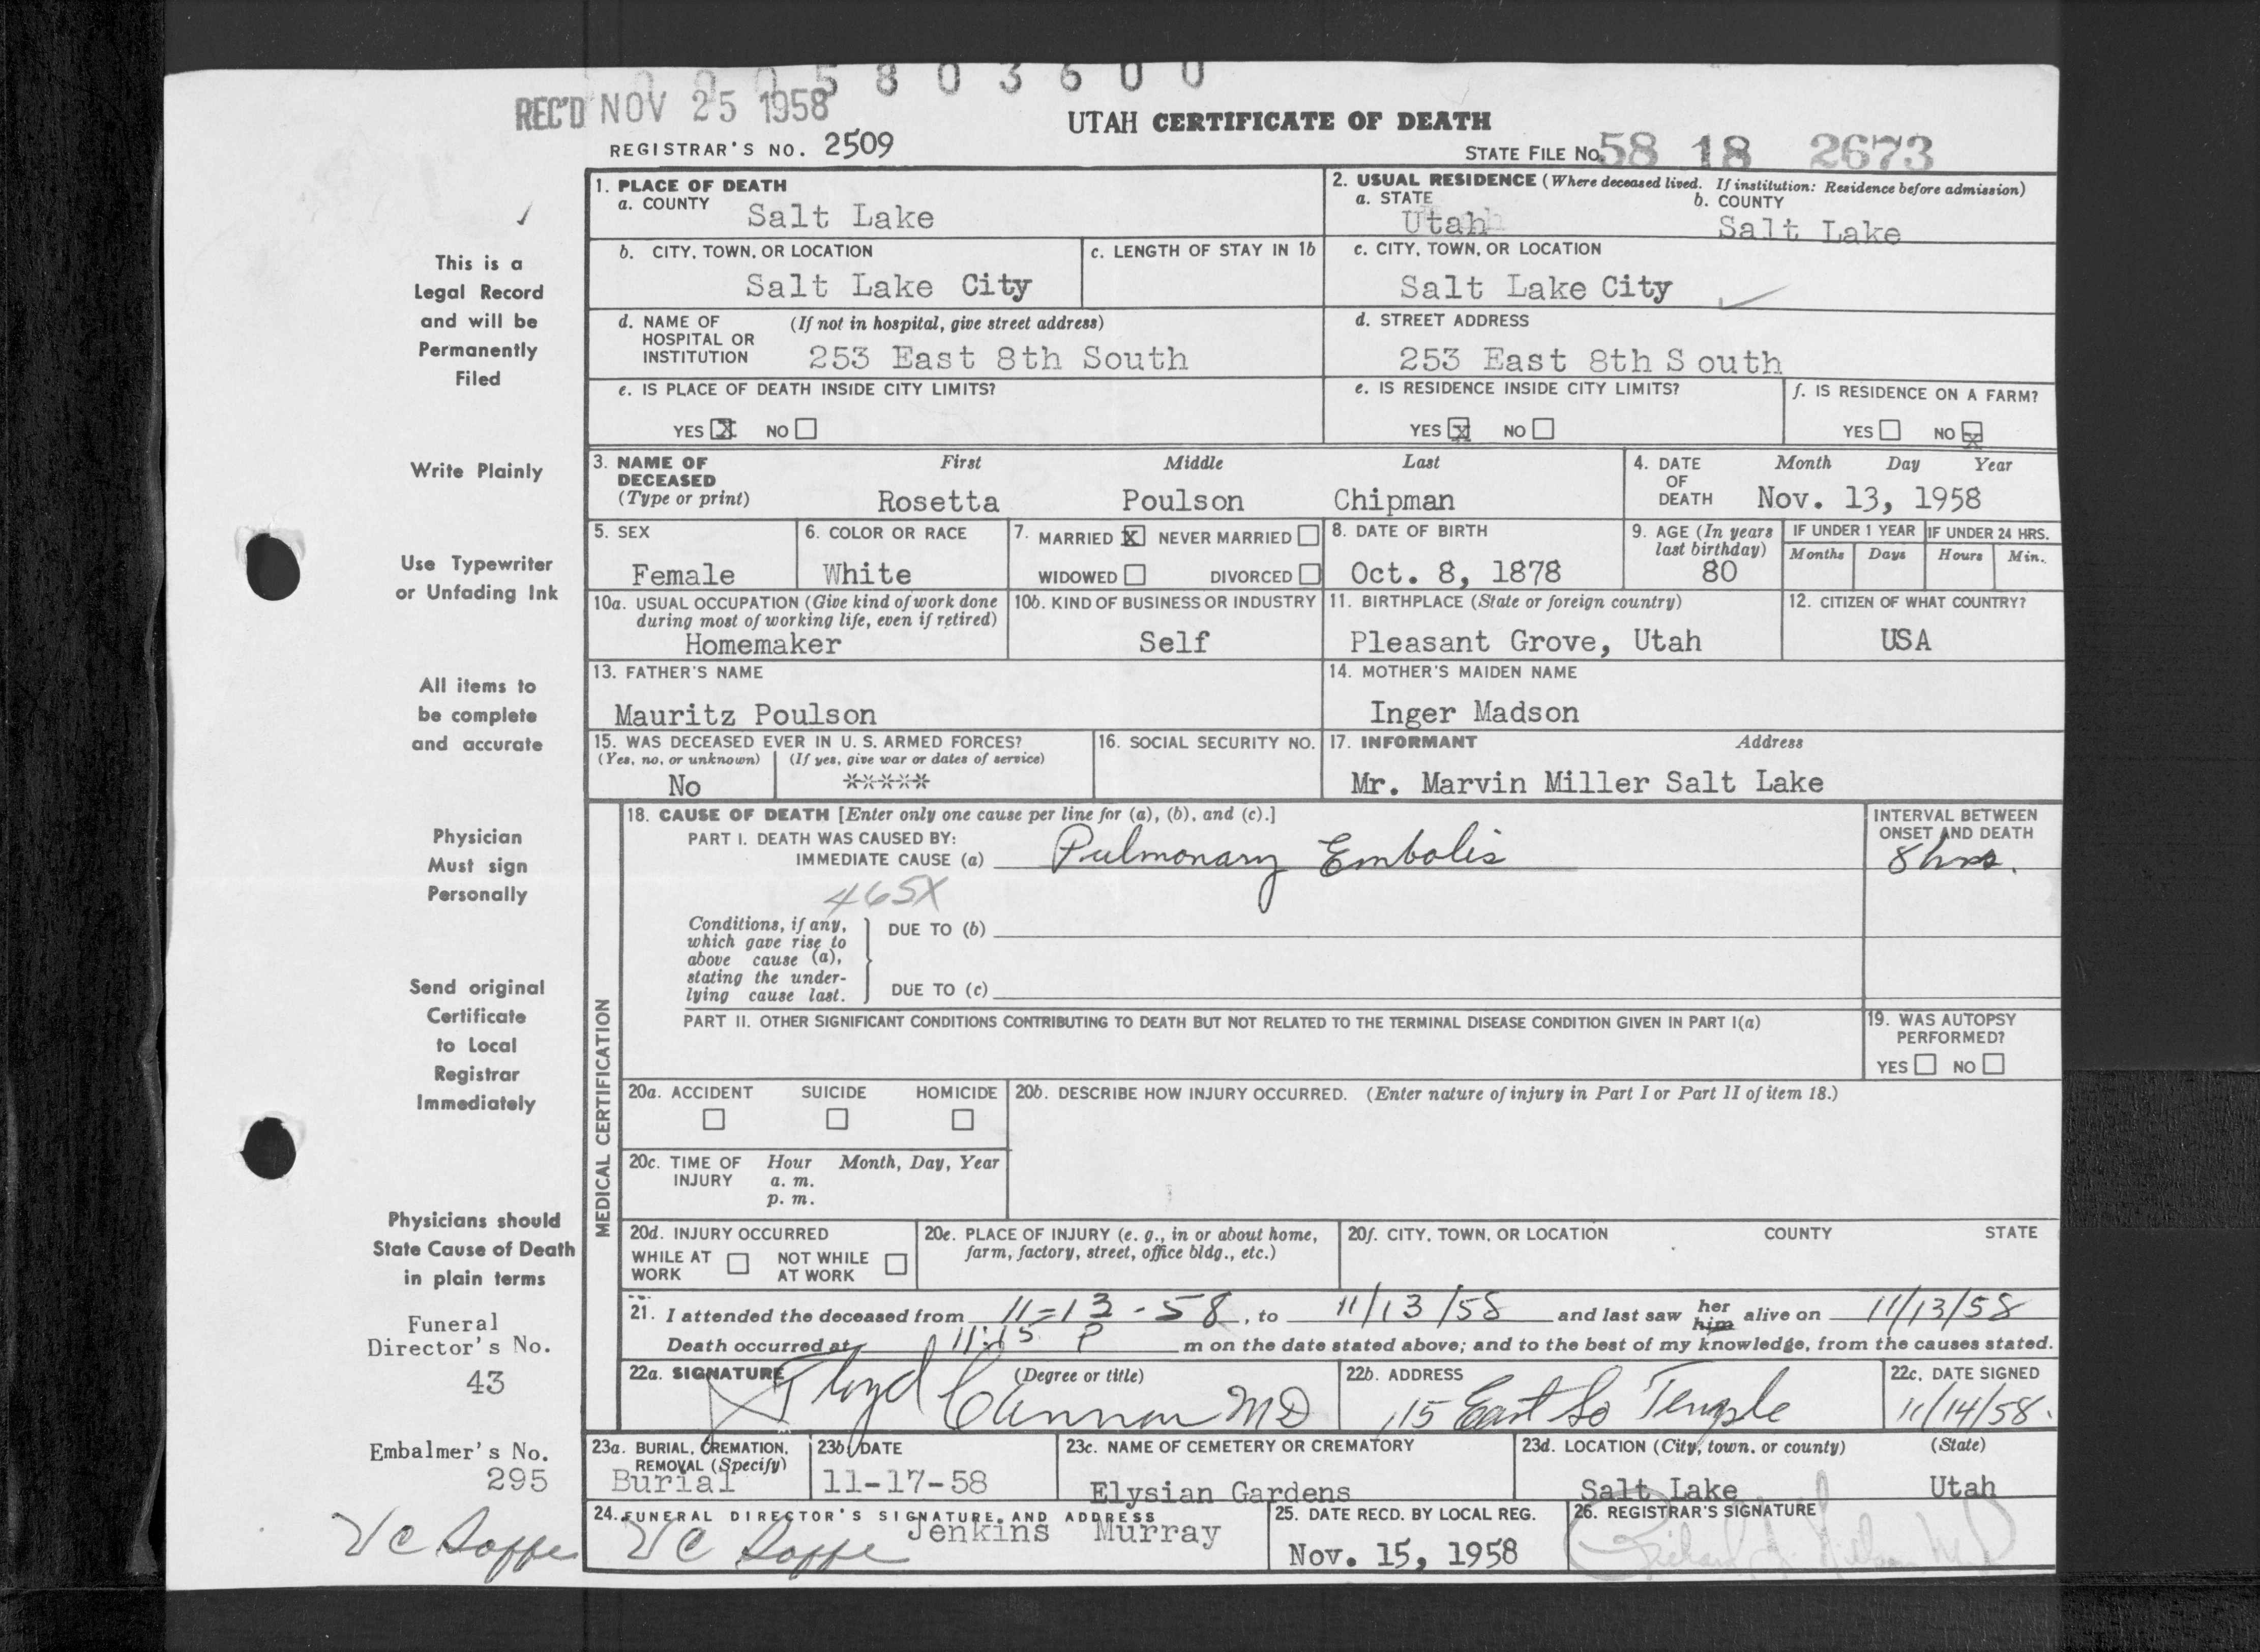 0 0 0 5 8 0 3 6 0 0
REC'D NOV 25 1958
UTAH CERTIFICATE OF DEATH
REGISTRAR'S NO. 2509
STATE FILE NO. 58 18 2673
1. PLACE OF DEATH
a. COUNTY Salt Lake
2. USUAL RESIDENCE (Where deceased lived. If institution: Residence before admission)
a. STATE Utah b. COUNTY Salt Lake
b. CITY, TOWN, OR LOCATION Salt Lake City
c. LENGTH OF STAY IN 1b
c. CITY, TOWN, OR LOCATION Salt Lake City
d. NAME OF HOSPITAL OR INSTITUTION (If not in hospital, give street address) 253 East 8th South
d. STREET ADDRESS 253 East 8th S outh
e. IS PLACE OF DEATH INSIDE CITY LIMITS?
YES X NO
e. IS RESIDENCE INSIDE CITY LIMITS?
YES X NO
f. IS RESIDENCE ON A FARM?
YES NO X
3. NAME OF DECEASED (Type or print)
First Middle Last
Rosetta Poulson Chipman
4. DATE OF DEATH Month Day Year
Nov. 13, 1958
5. SEX Female
6. COLOR OR RACE White
7. MARRIED X NEVER MARRIED
WIDOWED DIVORCED
8. DATE OF BIRTH Oct. 8, 1878
9. AGE (In years last birthday) 80
IF UNDER 1 YEAR Months Days
IF UNDER 24 HRS. Hours Min.
10a. USUAL OCCUPATION (Give kind of work done during most of working life, even if retired)
Homemaker
10b. KIND OF BUSINESS OR INDUSTRY
Self
11. BIRTHPLACE (State or foreign country)
Pleasant Grove, Utah
12. CITIZEN OF WHAT COUNTRY?
USA
13. FATHER'S NAME
Mauritz Poulson
14. MOTHER'S MAIDEN NAME
Inger Madson
15. WAS DECEASED EVER IN U. S. ARMED FORCES?
(Yes, no, or unknown) (If yes, give war or dates of service)
No *****
16. SOCIAL SECURITY NO.
17. INFORMANT Address
Mr. Marvin Miller Salt Lake
MEDICAL CERTIFICATION
18. CAUSE OF DEATH [Enter only one cause per line for (a), (b), and (c).]
PART I. DEATH WAS CAUSED BY:
IMMEDIATE CAUSE (a) Pulmonary Embolis
INTERVAL BETWEEN ONSET AND DEATH
8 hrs.
465X
Conditions, if any, which gave rise to above cause (a), stating the underlying cause last.
DUE TO (b)
DUE TO (c)
PART II. OTHER SIGNIFICANT CONDITIONS CONTRIBUTING TO DEATH BUT NOT RELATED TO THE TERMINAL DISEASE CONDITION GIVEN IN PART I(a)
19. WAS AUTOPSY PERFORMED?
YES NO
20a. ACCIDENT SUICIDE HOMICIDE
20b. DESCRIBE HOW INJURY OCCURRED. (Enter nature of injury in Part I or Part II of item 18.)
20c. TIME OF INJURY Hour Month, Day, Year
a. m.
p. m.
20d. INJURY OCCURRED
WHILE AT WORK NOT WHILE AT WORK
20e. PLACE OF INJURY (e. g., in or about home, farm, factory, street, office bldg., etc.)
20f. CITY, TOWN, OR LOCATION COUNTY STATE
21. I attended the deceased from 11-13-58, to 11/13/58 and last saw her him alive on 11/13/58
Death occurred at 11:15 P m on the date stated above; and to the best of my knowledge, from the causes stated.
22a. SIGNATURE (Degree or title)
Floyd Cannon MD
22b. ADDRESS
115 East So Temple
22c. DATE SIGNED
11/14/58.
23a. BURIAL, CREMATION, REMOVAL (Specify)
Burial
23b. DATE
11-17-58
23c. NAME OF CEMETERY OR CREMATORY
Elysian Gardens
23d. LOCATION (City, town, or county) (State)
Salt Lake Utah
24. FUNERAL DIRECTOR'S SIGNATURE AND ADDRESS
Jenkins Murray
25. DATE RECD. BY LOCAL REG.
Nov. 15, 1958
26. REGISTRAR'S SIGNATURE
This is a
Legal Record
and will be
Permanently
Filed
Write Plainly
Use Typewriter
or Unfading Ink
All items to
be complete
and accurate
Physician
Must sign
Personally
Send original
Certificate
to Local
Registrar
Immediately
Physicians should
State Cause of Death
in plain terms
Funeral
Director's No.
43
Embalmer's No.
295